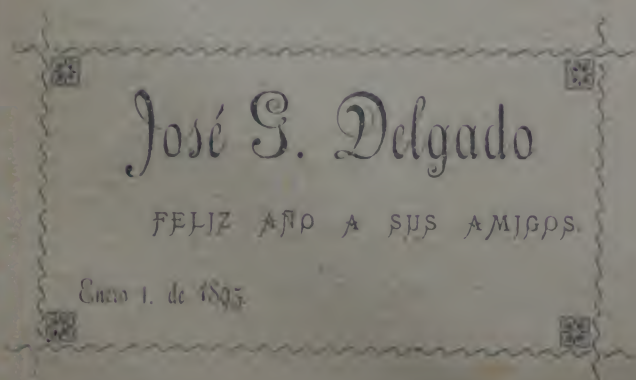 José G. Delgado
FELIZ AÑO A SUS AMIGOS.
Enero 1. de 1895.